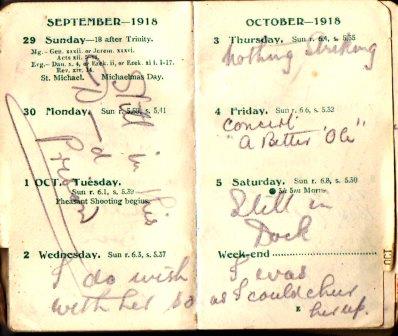 SEPTEMBER—1918
29 Sunday—18 after Trinity.
Mg.- Gen. xxxii. or Jerem. xxxvi.
Acts xii.
Evg.—Dan. x. 4, or Ezek. ii, or Ezek xi i. 1-17.
Rev. xiv. 14.
St. Michael. Michaelmas Day.
30 Monday. Sun r. 5.59, s. 5.41
1 OCT. Tuesday.
Sun r. 6.1, s. 5.39
Pheasant Shooting begins.
Still in this
D—d
Prison
2 Wednesday. Sun r. 6.3, s. 5.37
I do wish
with her so
OCTOBER—1918
3 Thursday. Sun r. 6.4, s. 5.35
Nothing striking
4 Friday. Sun r. 6.6, s. 5.32
Concert
"A Better 'Ole"
5 Saturday. Sun r. 6.8, s. 5.30
Still in
Dock
Week-end
I was
as I could cheer
her up.
E
OCT